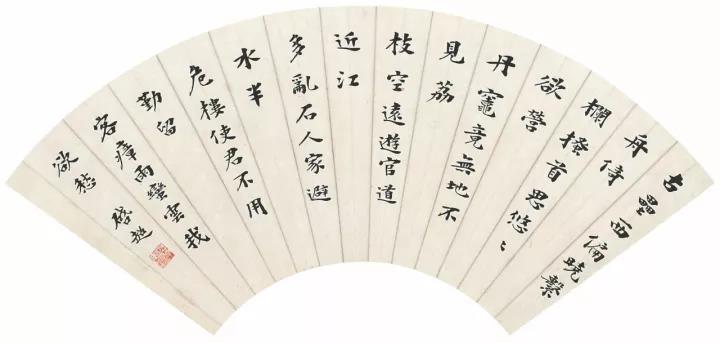 古壘西偏曉繫
舟倚
欄搔首思悠〻
欲營
丹竈竟無地不
見荔
枝空遠遊官道
近江
多亂石人家避
水半
危樓使君不用
勤留
客瘴雨蠻雲我
欲愁 啟超